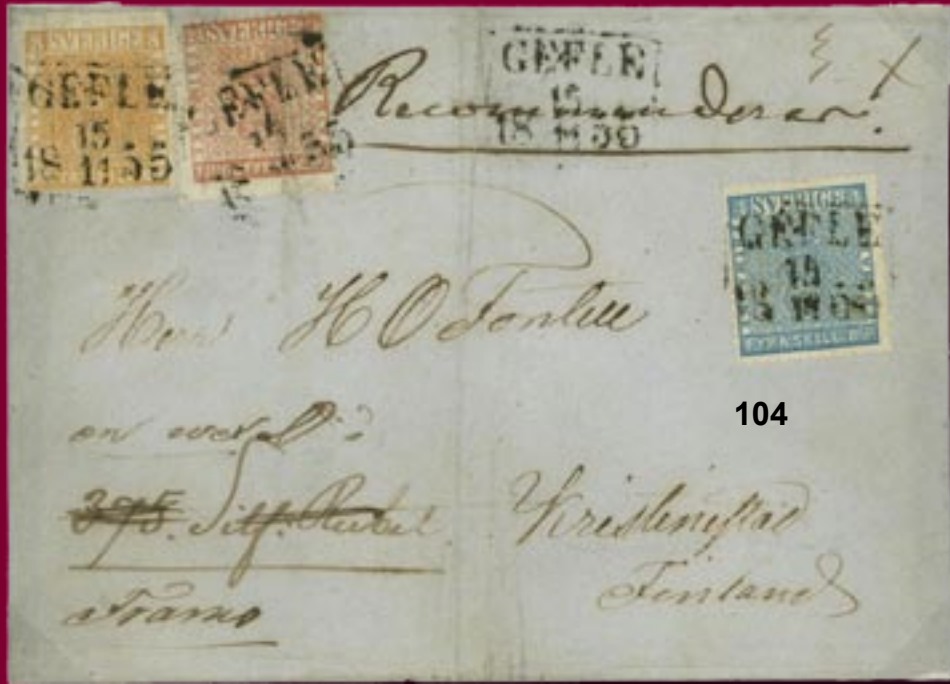 SVERIGE
GEFLE
15
18 11 55
SVERIGE
GEFLE
GEFLE
15
18 11 55
Recommenderas.
SVERIGE
GEFLE
15
18 11 55
FYRA SKILL. BCO
Herr H O Fontell
104
375. Silf. Rubel
Kristinestad
Finland
Franco